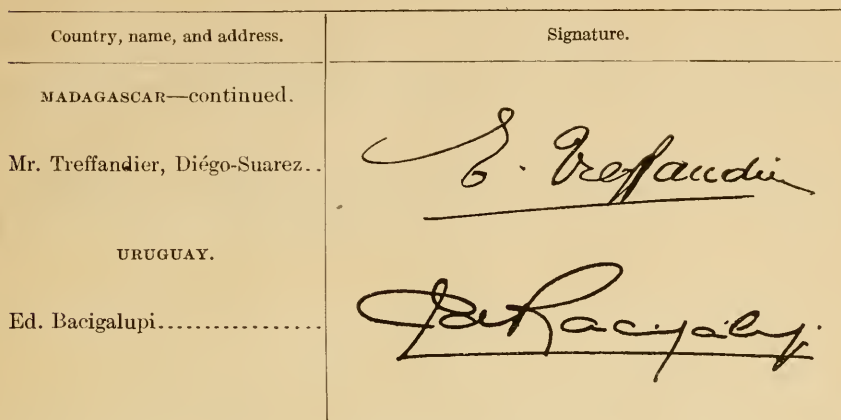 Country, name, and address.
Signature.
MADAGASCAR—continued.
Mr. Treffandier, Diégo-Suarez..
E. Treffandier
URUGUAY.
Ed. Bacigalupi................
Ed Bacigalupi